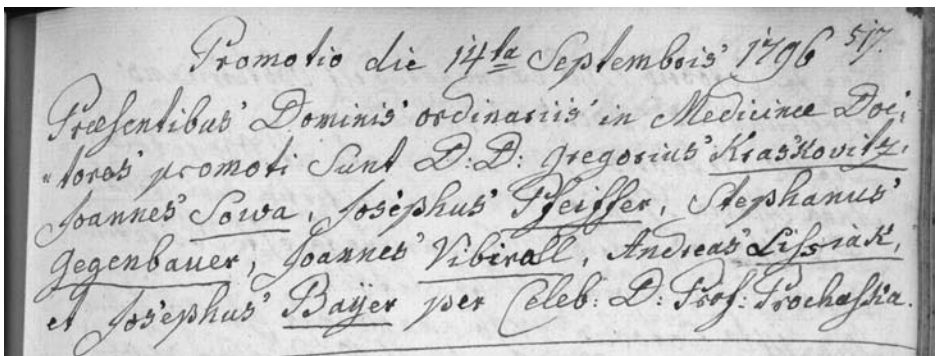 Promotio die 14ta Septembris 1796 517.
Præsentibus Dominis ordinariis in Medicinæ Doc-
-tores promoti sunt D: D: Gregorius Kraskovitz,
Joannes Sowa, Josephus Pfeiffer, Stephanus
Gegenbauer, Joannes Vibirall, Andreas Lissiak,
et Josephus Baÿer per Celeb: D: Prof: Prochaska.